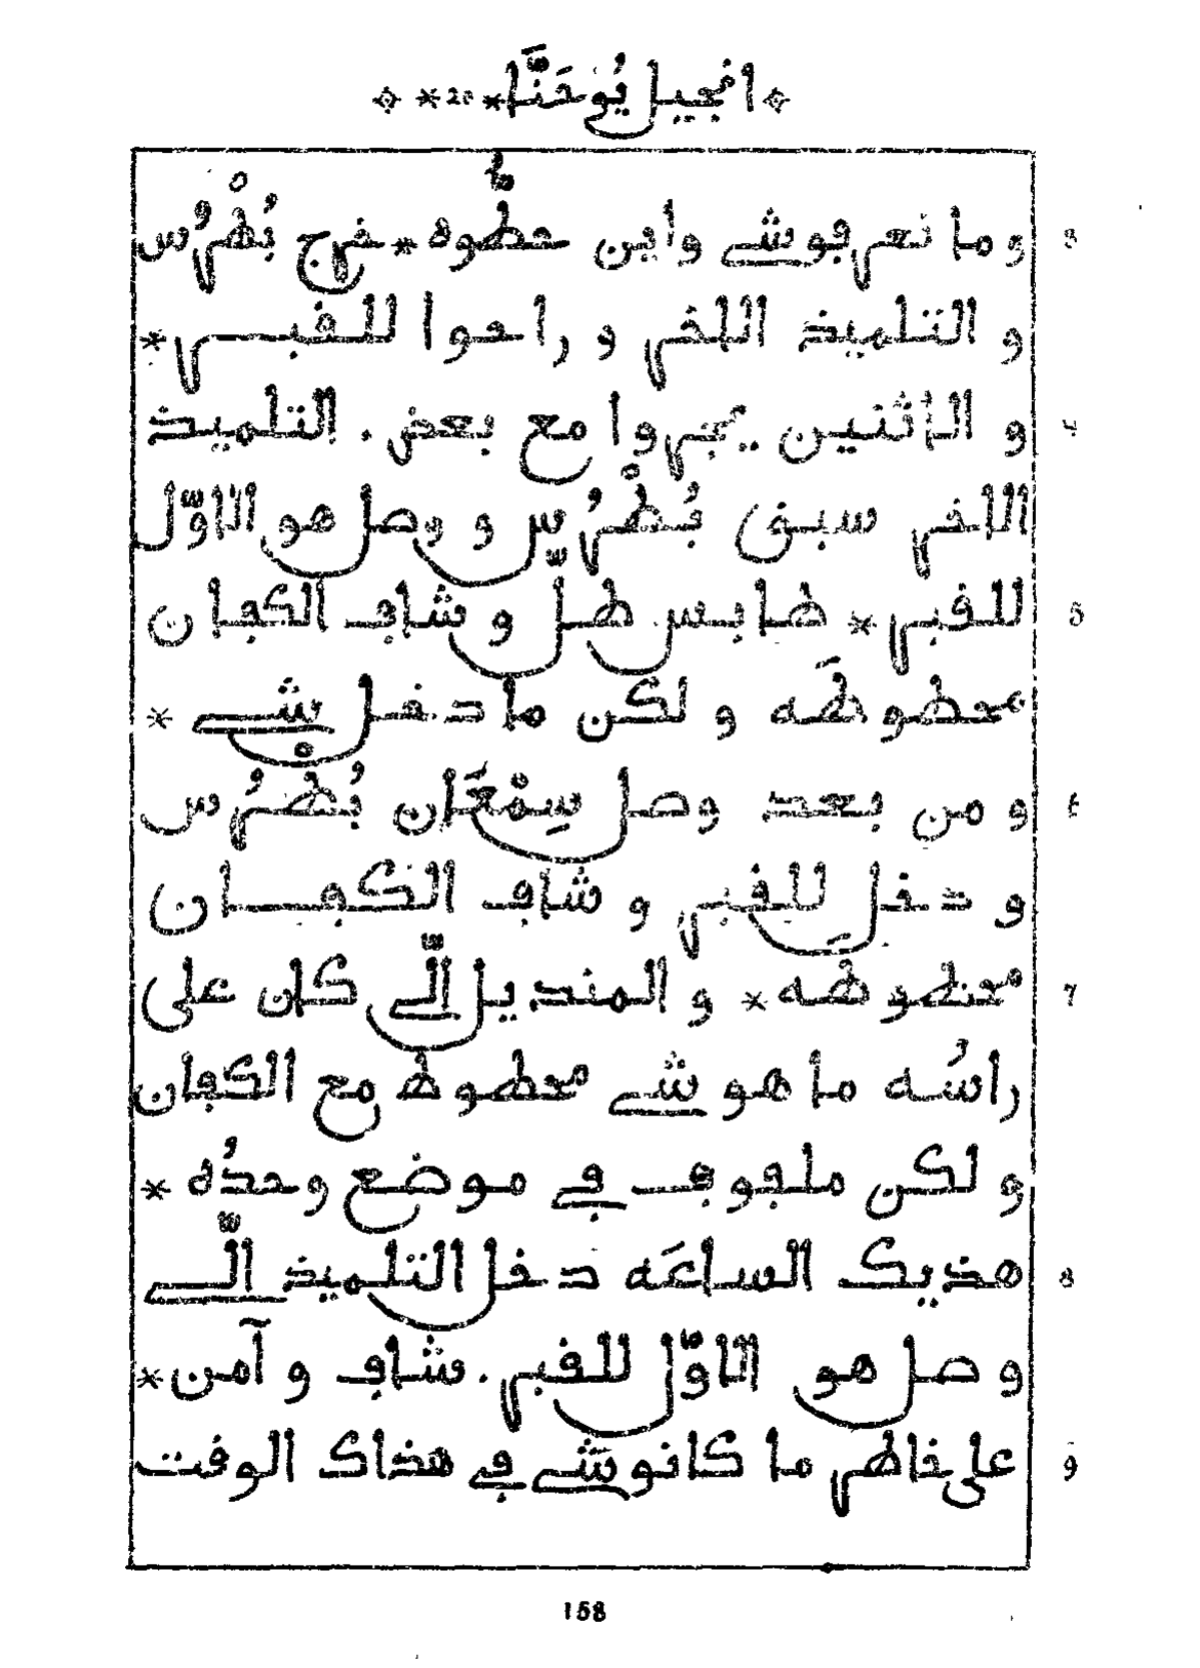 انجيل يُوحَنَّا * 20 *
3 وما نعرفوشي واين حطُّوه * خرج بُطْرُس
و التلميذ الاخر و راحوا للقبر *
4 و الاثنين يجروا مع بعض . التلميذ
الاخر سبق بُطْرُس و وصل هو الاوّل
5 للقبر * طابس طلّ و شاف الكفان
محطوطَه و لكن ما دخل شي *
6 و من بعد وصل سِمْعَان بُطْرُس
و دخل لِلقبر و شاف الكفان
7 محطوطَه * و المنديل الّي كان على
راسُه ما هوشي محطوط مع الكفان
و لكن ملفوف في موضع وحدُه *
8 هذيك الساعَه دخل التلميذ الّي
وصل هو الاوّل للقبر . شاف و آمن *
9 على خاطر ما كانوشي في هذاك الوقت
158